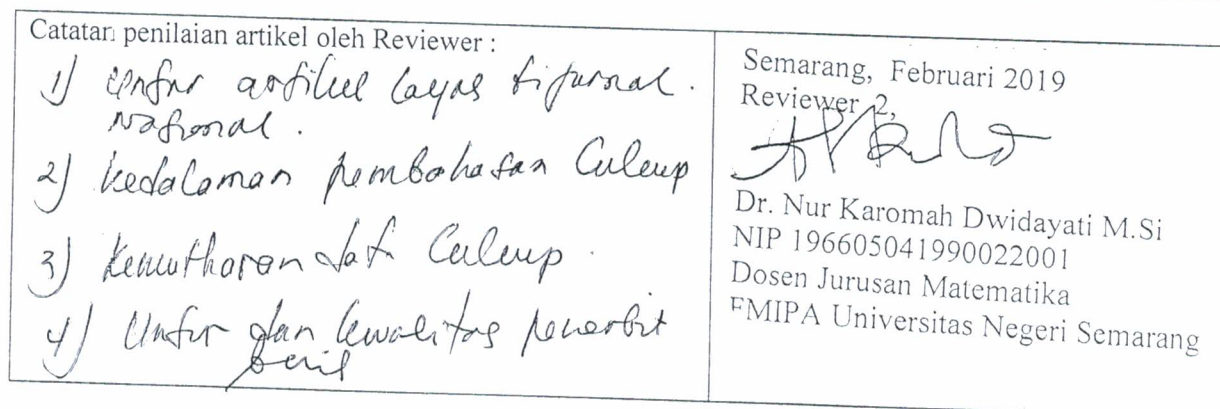 Catatan penilaian artikel oleh Reviewer :
1) Unsur artikel layak di jurnal.
Nasional.
2) kedalaman pembahasan Cukup
3) kemutharan data Cukup.
4) Unsur dan kualitas penerbit
baik
Semarang, Februari 2019
Reviewer 2,
Dr. Nur Karomah Dwidayati M.Si
NIP 196605041990022001
Dosen Jurusan Matematika
FMIPA Universitas Negeri Semarang